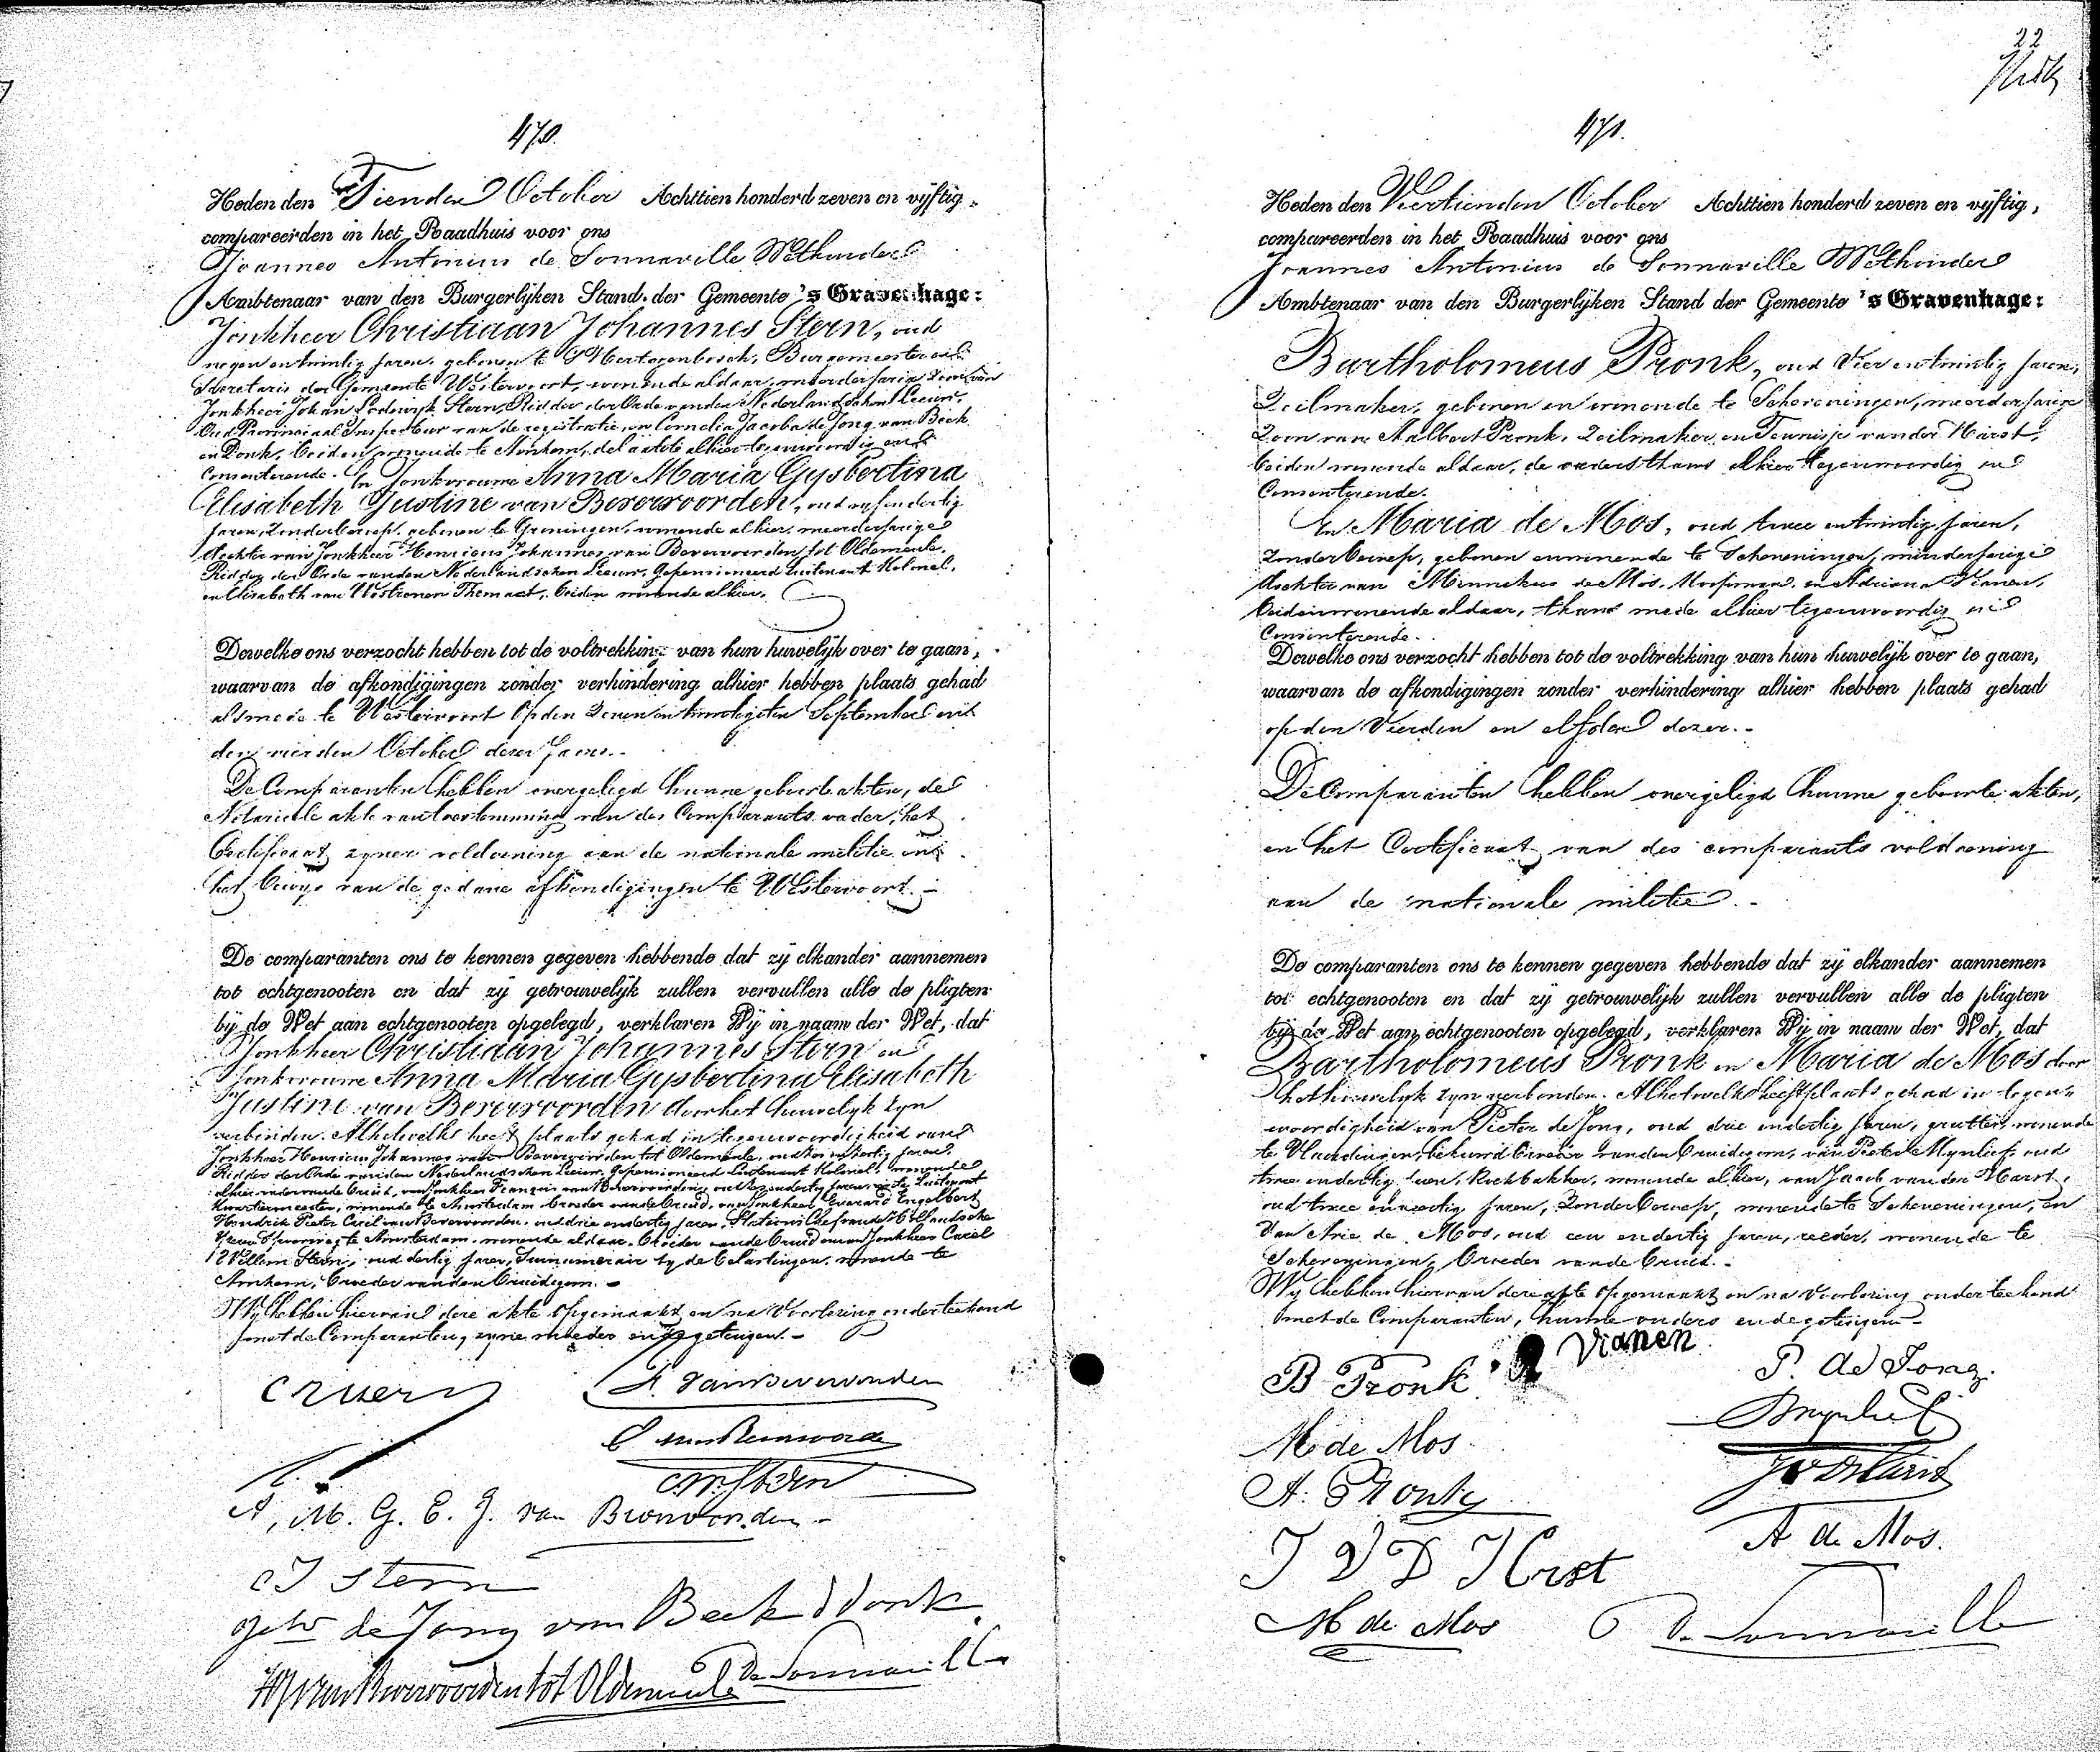 470.
Heden den Tienden October Achttien honderd zeven en vijftig,
compareerden in het Raadhuis voor ons
Joannes Antonius de Sonnaville Wethouder
Ambtenaar van den Burgerlijken Stand der Gemeente 's Gravenhage:
Jonkheer Christiaan Johannes Stern, oud
negen en twintig Jaren, geboren te 's Hertogenbosch, Burgemeester en
Secretaris der Gemeente Westervoort, wonende aldaar, meerderjarige Zoon van
Jonkheer Johan Lodewijk Stern, Ridder der Orde van den Nederlandschen Leeuw,
Oud Provinciaal Inspecteur van de registratie, en Cornelia Jacoba de Jong van Beek
en Donk, beiden wonende te Arnhem, de laatste alhier tegenwoordig en
Consenterende. En Jonkvrouwe Anna Maria Gysbertina
Elisabeth Justine van Bevervoorden, oud
Jaren, Zonder beroep, geboren te Groningen, wonende alhier, meerderjarige
dochter van Jonkheer Henricus Johannes van Bevervoorden tot Oldemeule,
Ridder der Orde van den Nederlandschen Leeuw, Gepensioneerd Luitenant Kolonel,
en Elisabeth van Westrenen Themaat, beiden wonende alhier.
Dewelke ons verzocht hebben tot de voltrekking van hun huwelijk over te gaan,
waarvan de afkondigingen zonder verhindering alhier hebben plaats gehad
alsmede te Westervoort op den Zeven en twintigsten September en
den vierden October dezes Jaars.
De Comparanten hebben overgelegd hunne geboorte akten, de
Notariele akte van toestemming van des Comparants vader, het
Certificaat zyner voldoening aan de nationale militie en
het bewys van de gedane afkondigingen te Westervoort.
De comparanten ons te kennen gegeven hebbende dat zij elkander aannemen
tot echtgenooten en dat zij getrouwelijk zullen vervullen alle de pligten
bij de Wet aan echtgenooten opgelegd, verklaren Wij in naam der Wet, dat
Jonkheer Christiaan Johannes Stern en
Jonkvrouwe Anna Maria Gysbertina Elisabeth
Justine van Bevervoorden door het huwelyk zyn
verbonden. Alhetwelk heeft plaats gehad in tegenwoordigheid van
Jonkheer Henricus Johannes van Bevervoorden tot Oldemeule, oud Jaren,
Ridder der Orde van den Nederlandschen Leeuw, Gepensioneerd Luitenant Kolonel, wonende
alhier, vader van de bruid, van Jonkheer François van Bevervoorden, oud Jaren, eerste Luitenant
Kwartiermeester, wonende te Amsterdam broeder van de bruid, van Jonkheer Everard Engelbert
Hendrik Pieter Carel van Bevervoorden, oud drie en dertig Jaren, Stations Chef van de Hollandsche
Yzeren Spoorweg te Amsterdam, wonende aldaar, broeder van de bruid en van Jonkheer Carel
Willem Stern, oud dertig Jaren, Surnumerair by de belastingen, wonende te
Arnhem, broeder van den bruidegom.
Wy hebben hiervan deze akte opgemaakt en na voorlezing onderteekend
met de Comparanten, zyne moeder en de getuigen.
C W Stern
F. van Bevervoorden
A. M. G. E. J. van Bevervoorden
C J Stern
geb de Jong van Beek Donk
HJ van Bevervoorden tot Oldemeule
de Sonnaville
22
471.
Heden den Veertienden October Achttien honderd zeven en vijftig,
compareerden in het Raadhuis voor ons
Joannes Antonius de Sonnaville Wethouder
Ambtenaar van den Burgerlijken Stand der Gemeente 's Gravenhage:
Bartholomeus Pronk, oud Vier en twintig Jaren,
Zeilmaker, geboren en wonende te Scheveningen, meerderjarige
Zoon van Aalbert Pronk, Zeilmaker, en Teuntje van der Harst,
beiden wonende aldaar, de ouders thans alhier tegenwoordig en
Consenterende.
En Maria de Mos, oud twee en twintig Jaren,
Zonder beroep, geboren en wonende te Scheveningen, minderjarige
dochter van Minnekus de Mos, Koopman, en Adriana Vianen,
beiden wonende aldaar, thans mede alhier tegenwoordig en
Consenterende.
Dewelke ons verzocht hebben tot de voltrekking van hun huwelijk over te gaan,
waarvan de afkondigingen zonder verhindering alhier hebben plaats gehad
op den Vierden en elfden dezer.
De Comparanten hebben overgelegd hunne geboorte akten,
en het Certificaat van des comparants voldoening
aan de nationale militie.
De comparanten ons te kennen gegeven hebbende dat zij elkander aannemen
tot echtgenooten en dat zij getrouwelijk zullen vervullen alle de pligten
bij de Wet aan echtgenooten opgelegd, verklaren Wij in naam der Wet, dat
Bartholomeus Pronk en Maria de Mos door
het huwelyk zyn verbonden. Alhetwelk heeft plaats gehad in tegen-
woordigheid van Pieter de Jong, oud drie en dertig Jaren, grutter, wonende
te Vlaardingen, behuwd broeder van den bruidegom, van Pieter Mynlieff, oud
twee en dertig Jaren, Koekbakker, wonende alhier, van Jacob van der Harst,
oud twee en veertig Jaren, Zonder beroep, wonende te Scheveningen, en
van Arie de Mos, oud een en dertig Jaren, reeder, wonende te
Scheveningen, broeder van de bruid.
Wij hebben hiervan deze akte opgemaakt en na voorlezing onderteekend
met de Comparanten, hunne ouders en de getuigen.
B Pronk
Vianen
P. de Jong.
M de Mos
A. Pronk
A de Mos.
T V D Harst
M de Mos
de Sonnaville